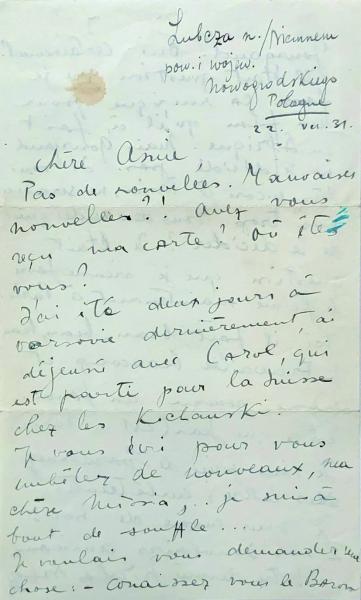 Lubcza n./Niemnem
pow. i wojew.
Nowogrodskiego
Pologne
22. VII. 31.
Chère Amie,
Pas de nouvelles. Mauvaises
nouvelles?! Avez vous
reçu ma carte? où êtes
vous?
J'ai été deux jours à
varsovie dernièrement, ai
déjeuné avec Carol, qui
est partie pour la Suisse
chez les
Je vous écri pour vous
embêter de nouveaux, ma
chère Missia,.. je suis à
bout de souffle...
Je voulais vous demander une
chose: - conaissez vous le Baron